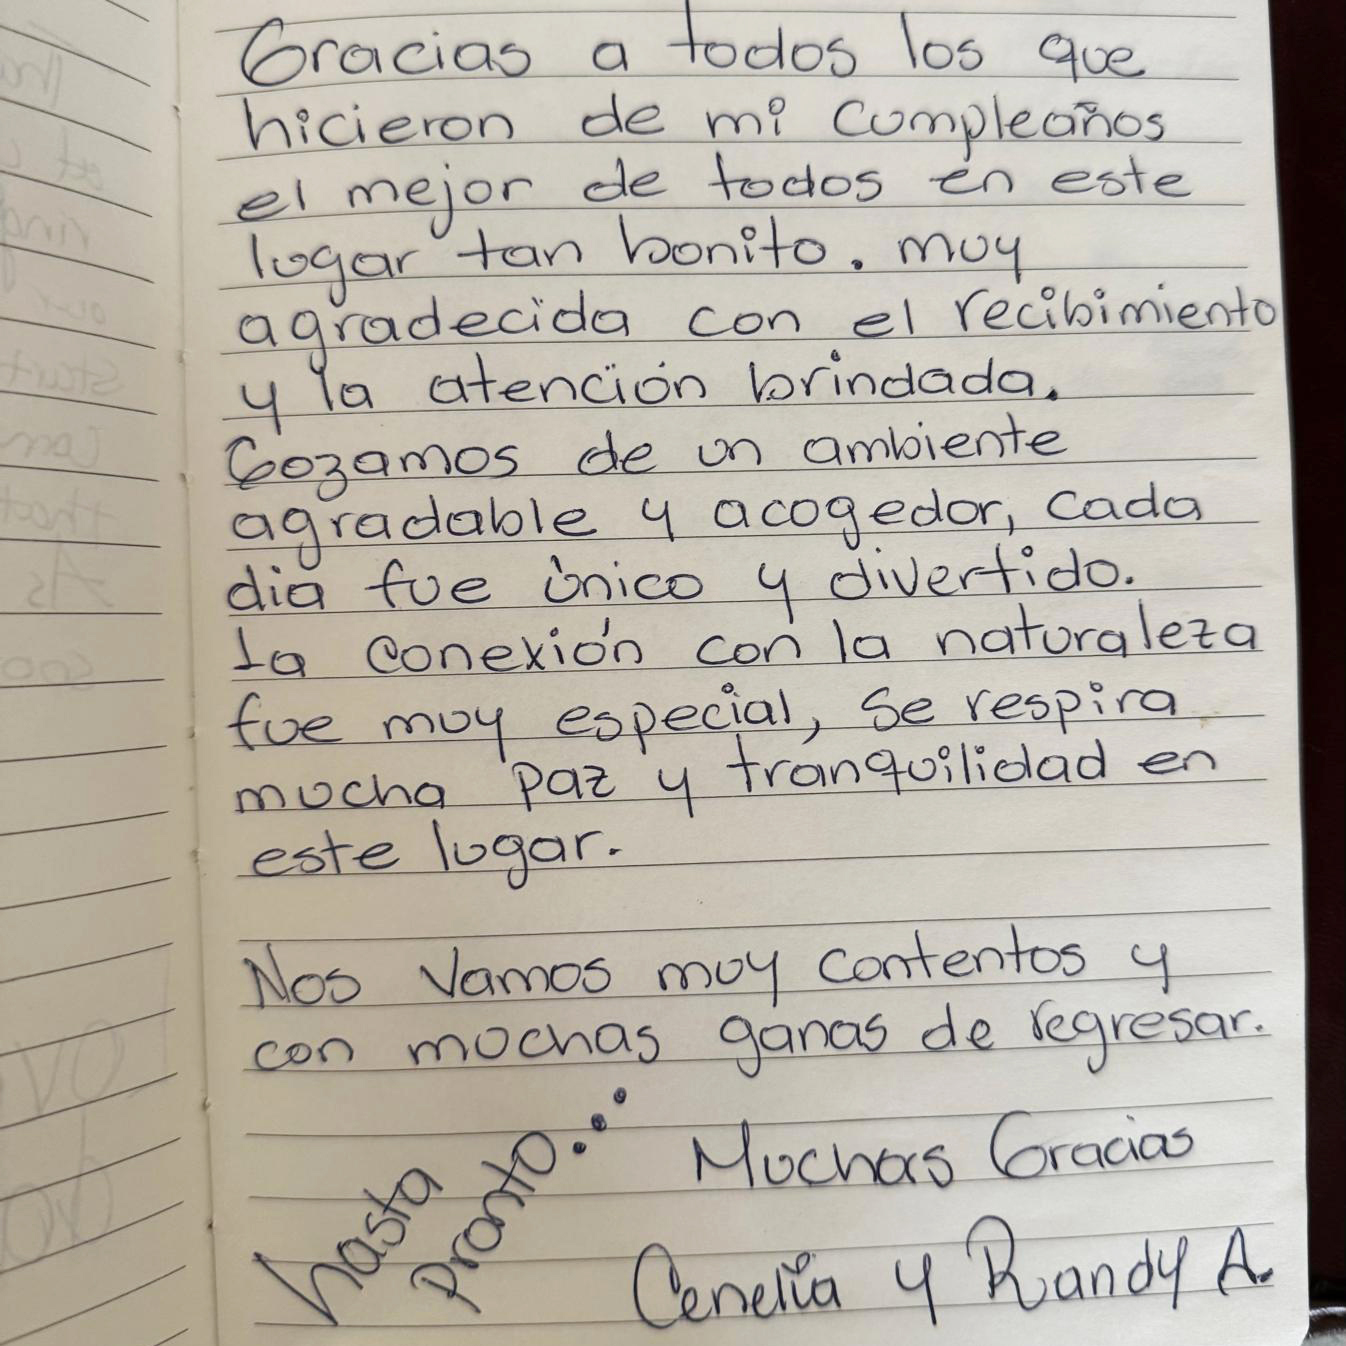 Gracias a todos los que
hicieron de mi cumpleaños
el mejor de todos en este
lugar tan bonito. muy
agradecida con el recibimiento
y la atención brindada.
Gozamos de un ambiente
agradable y acogedor, cada
dia fue único y divertido.
La conexión con la naturaleza
fue muy especial, se respira
mucha paz y tranquilidad en
este lugar.
Nos vamos muy contentos y
con muchas ganas de regresar.
hasta
pronto...
Muchas Gracias
Cenelia y Randy A.